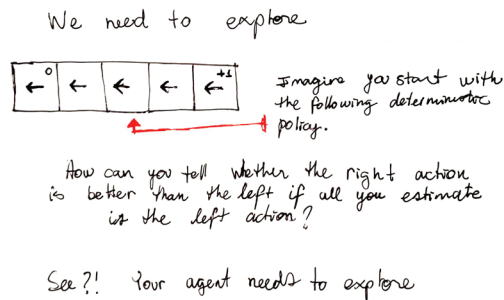 We need to explore
0
← ← ← ← ←
+1
Imagine you start with
the following deterministic
policy.
How can you tell whether the right action
is better than the left if all you estimate
is the left action?
See?! Your agent needs to explore